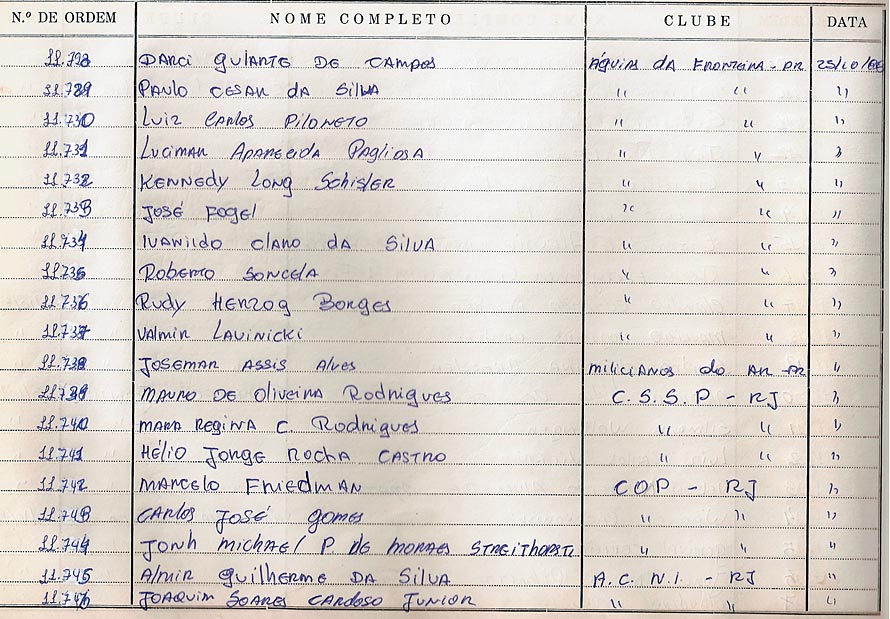 N.º DE ORDEM NOME COMPLETO CLUBE DATA
11.728 DARCI GULARTE DE CAMPOS ÁGUIAS DA FRONTEIRA - PR 25/10/
11.729 PAULO CESAR DA SILVA " " "
11.730 LUIZ CARLOS PILONETO " " "
11.731 LUCIMAR APARECIDA PAGLIOSA " " "
11.732 KENNEDY LONG SCHISLER " " "
11.733 JOSÉ FOGEL " " "
11.734 IVANILDO CLARO DA SILVA " " "
11.735 ROBERTO SONCELA " " "
11.736 RUDY HERZOG BORGES " " "
11.737 VALMIR LAVINICKI " " "
11.738 JOSEMAR ASSIS ALVES MILICIANOS DO AR - PR "
11.739 MAURO DE OLIVEIRA RODRIGUES C.S.S.P - RJ "
11.740 MARA REGINA C. RODRIGUES " " "
11.741 HÉLIO JORGE ROCHA CASTRO " " "
11.742 MARCELO FRIEDMAN COP - RJ "
11.743 CARLOS JOSÉ GOMES " " "
11.744 JONH MICHAEL P DE MORAES " " "
11.745 ALMIR GUILHERME DA SILVA A.C.N.I. - RJ "
11.746 JOAQUIM SOARES CARDOSO JUNIOR " " "